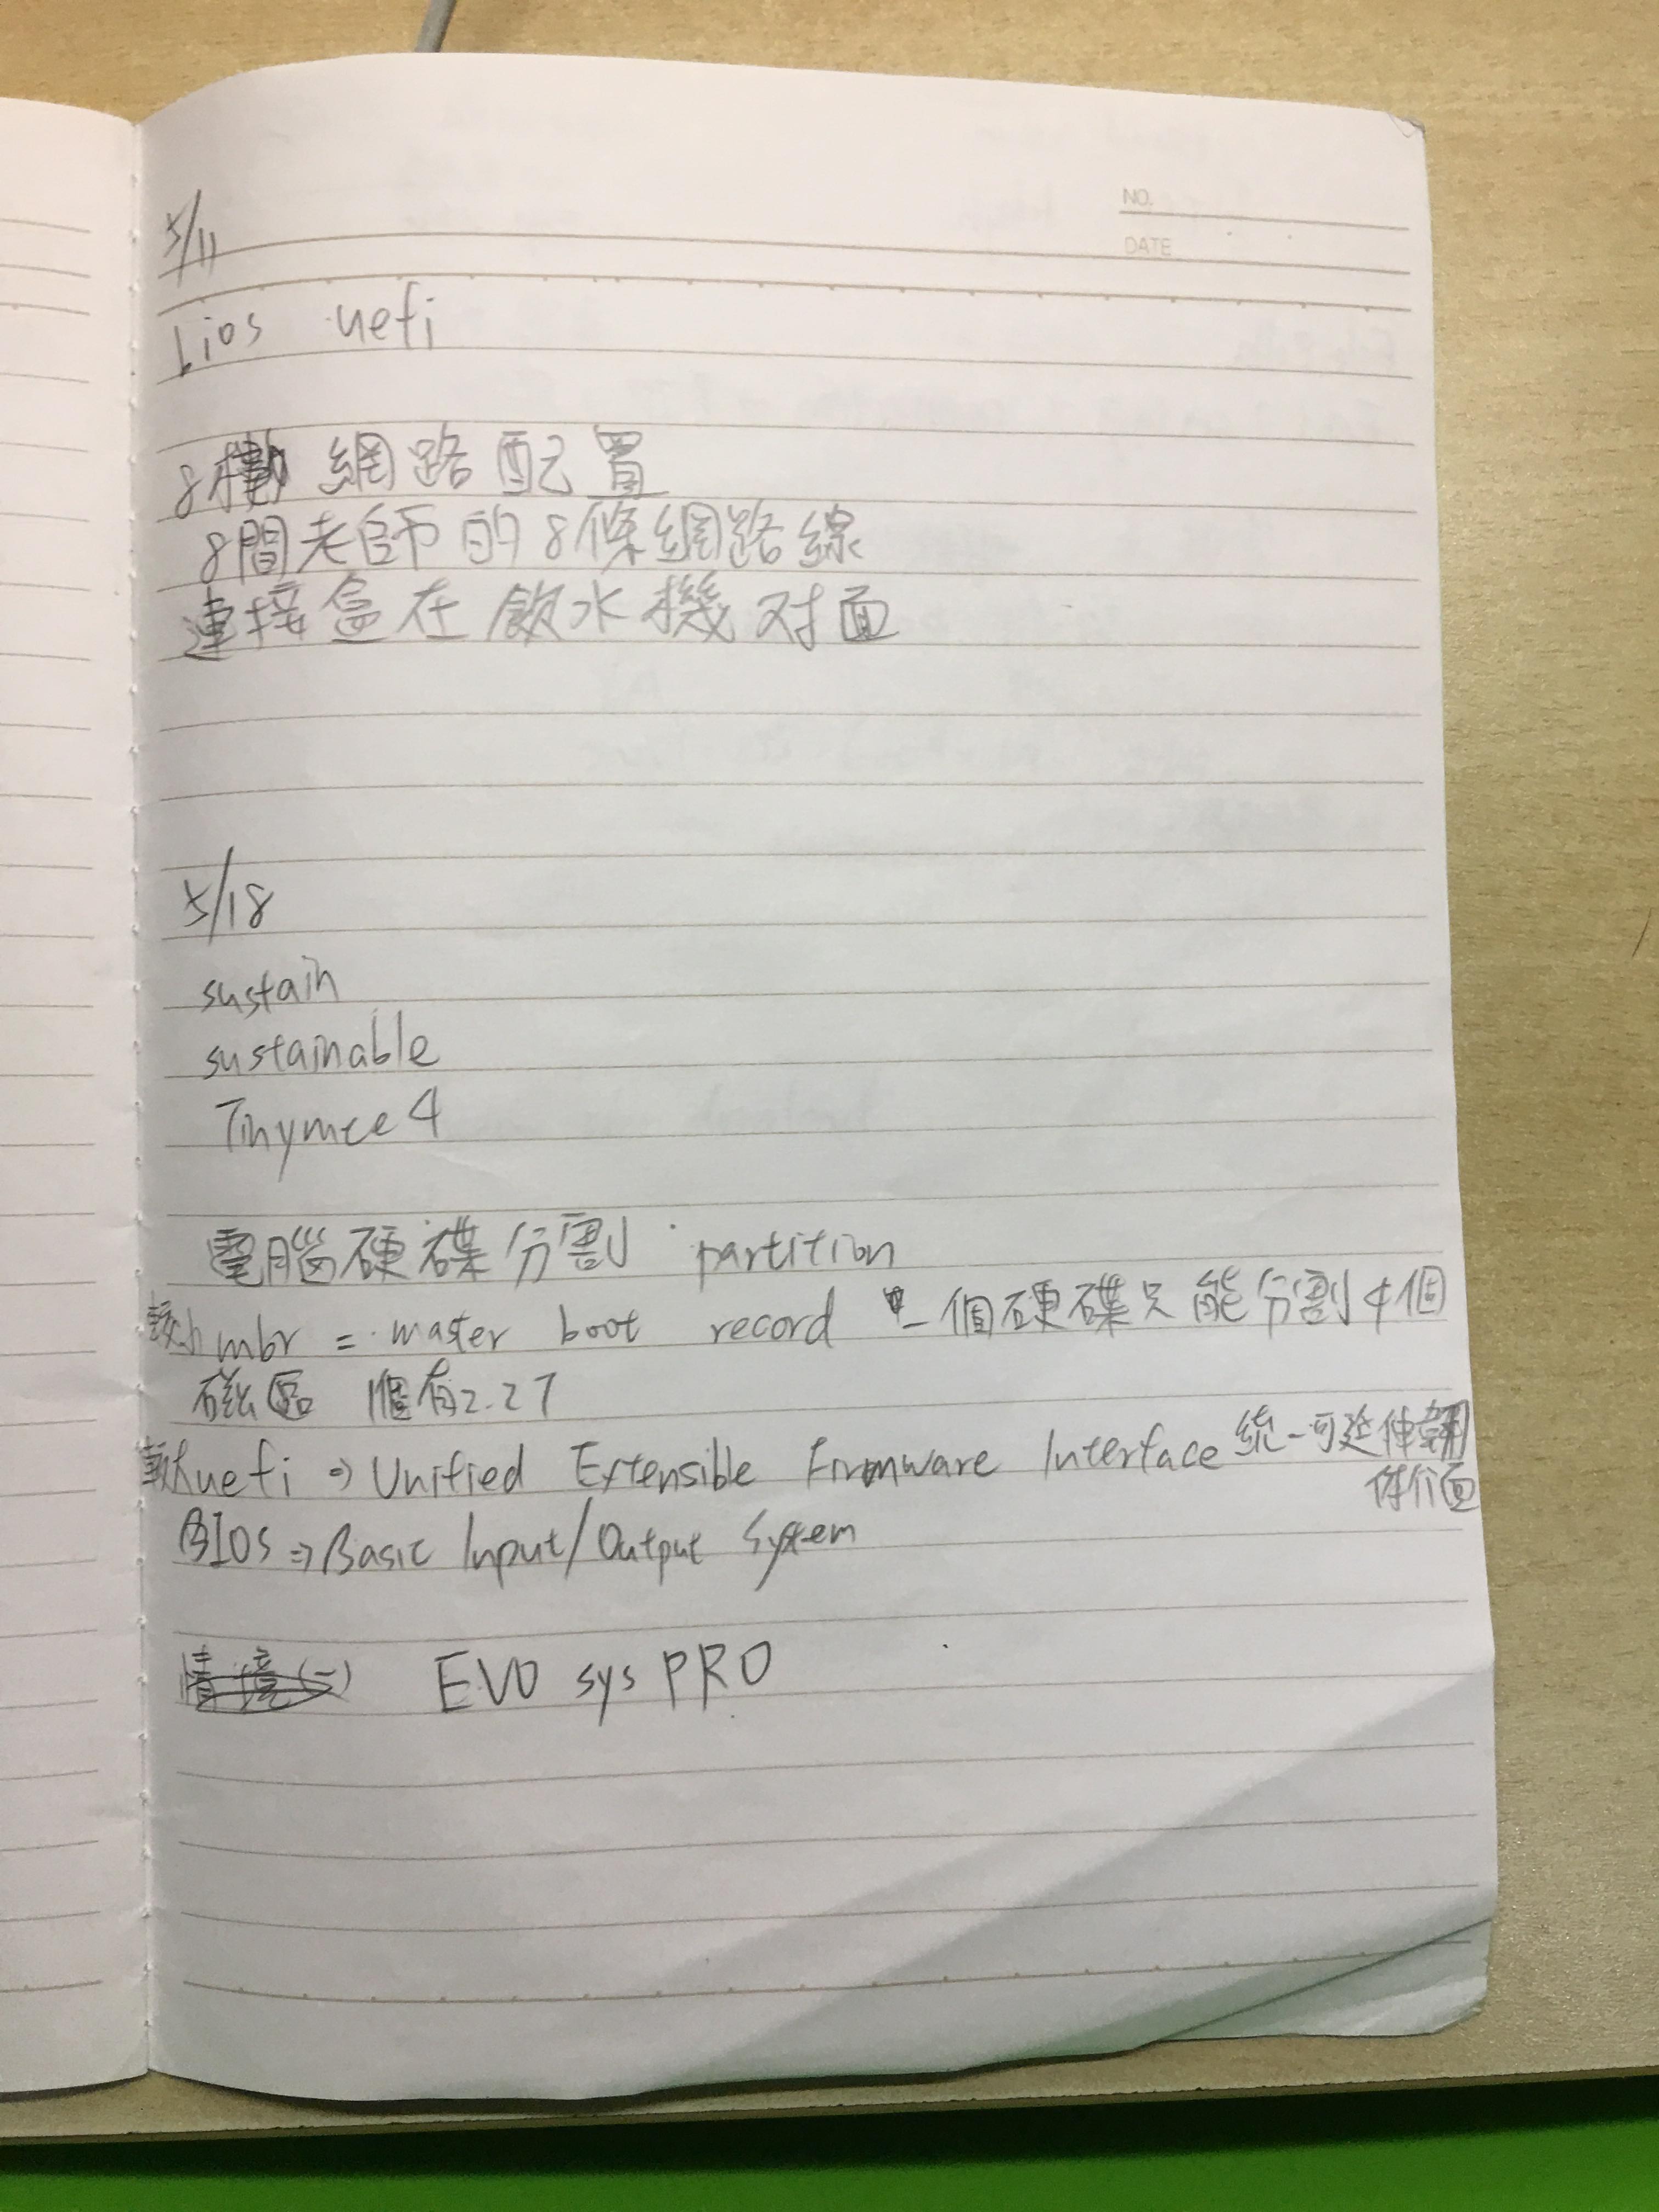 NO.
DATE
5/11
bios uefi
8樓 網路配置
8間老師的8條網路線
連接盒在飲水機对面
5/18
sustain
sustainable
Tinymce 4
電腦硬碟分割 partition
較小 mbr = master boot record 一個硬碟只能分割4個
磁區 1個有2.2T
較大 uefi => Unified Extensible Firmware Interface 統一可延伸韌
体介面
BIOS => Basic Input/Output System
EVO sys PRO